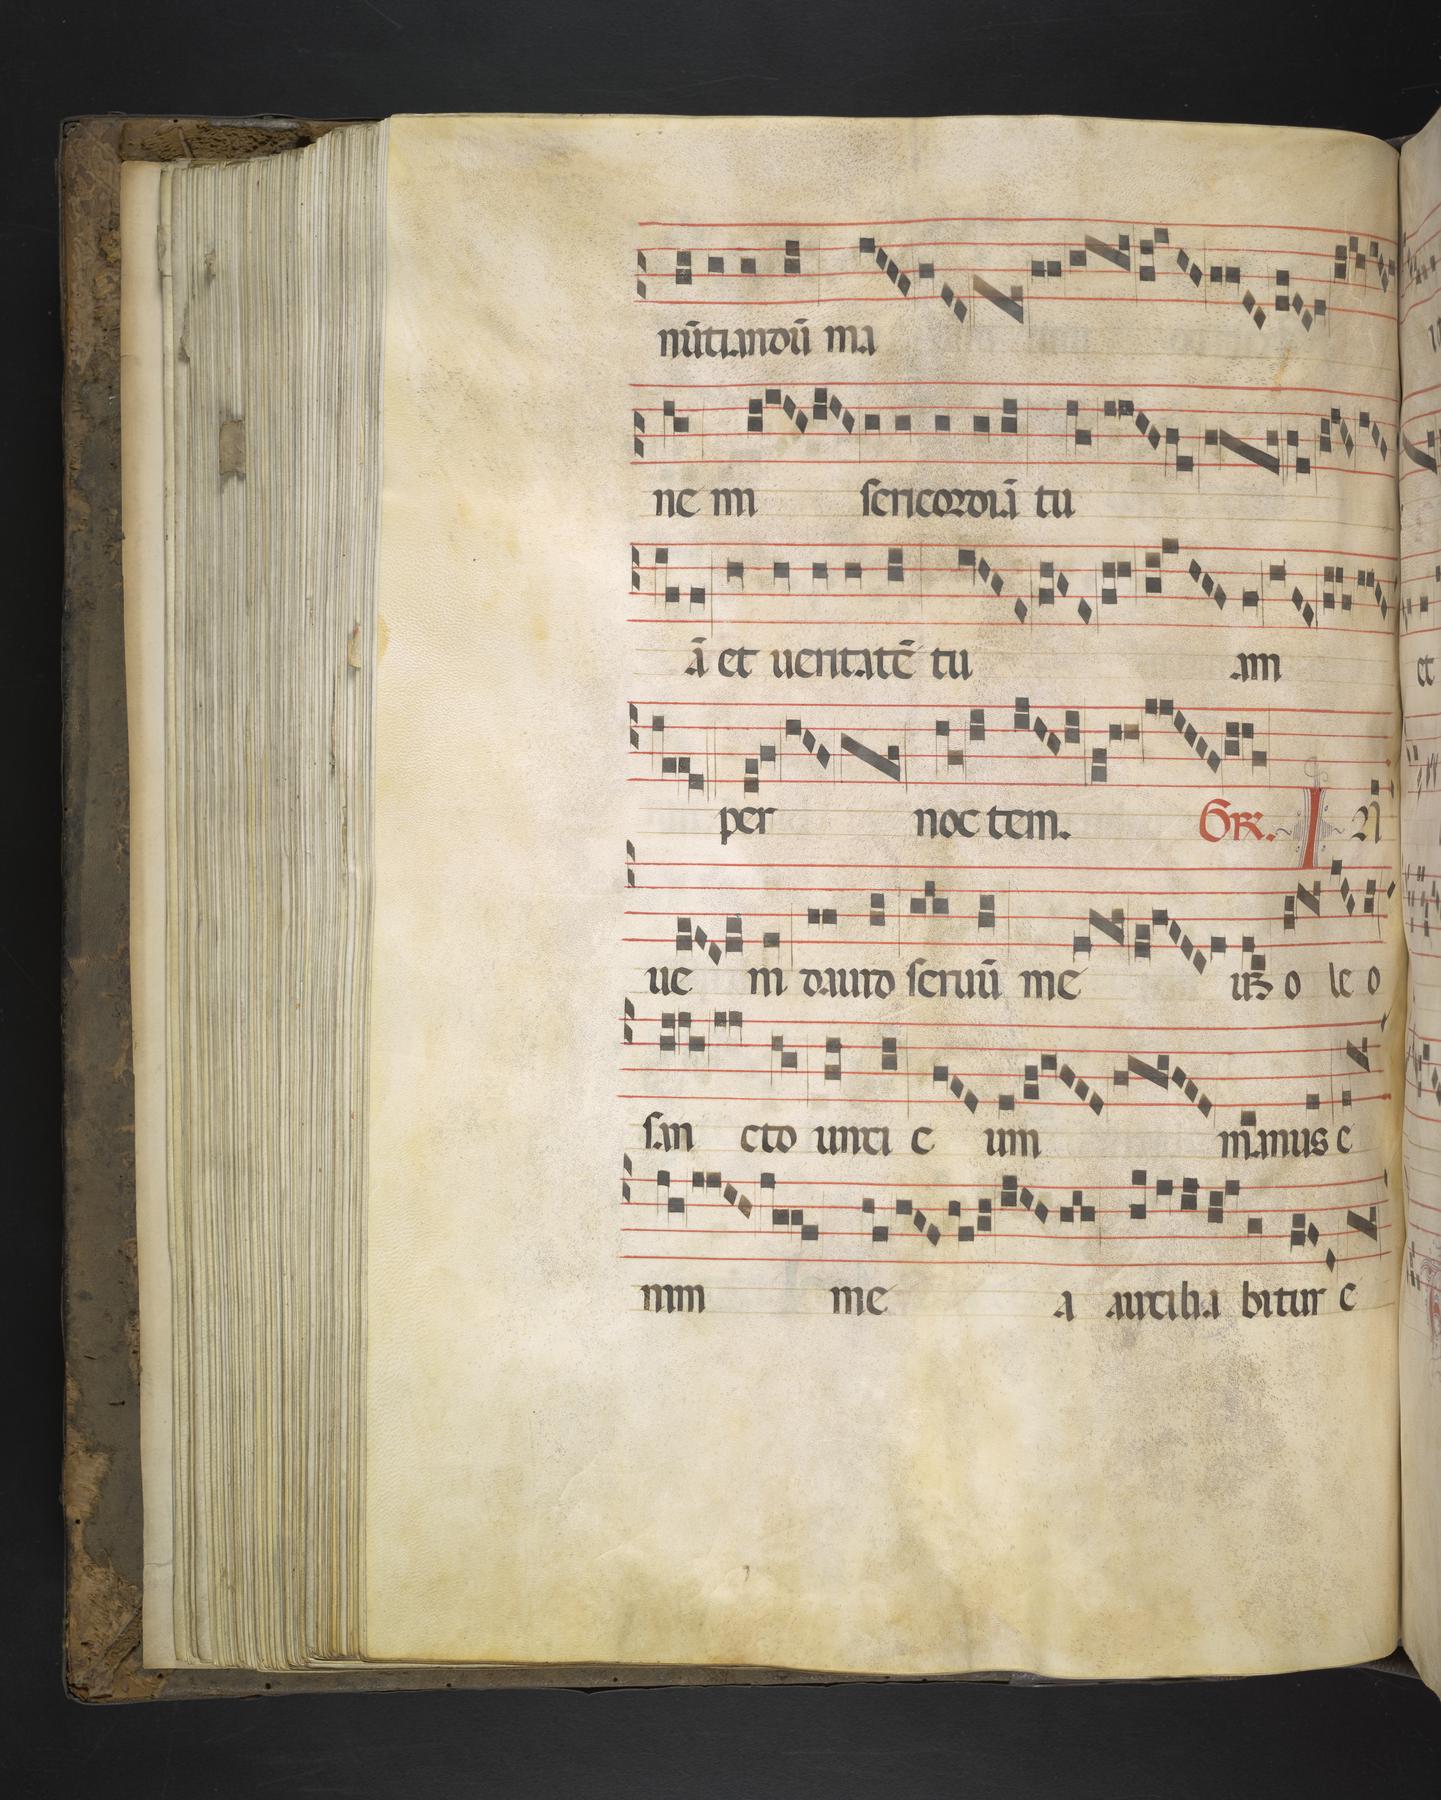 nūtiandū ma
ne mi sericordiā tu
ā et ueritatē tu am
per noc tem. Gr. I N
ue ni dauid seruū me uʒ o le o
san cto unxi e um manus e
nim me a auxilia bitur e
et